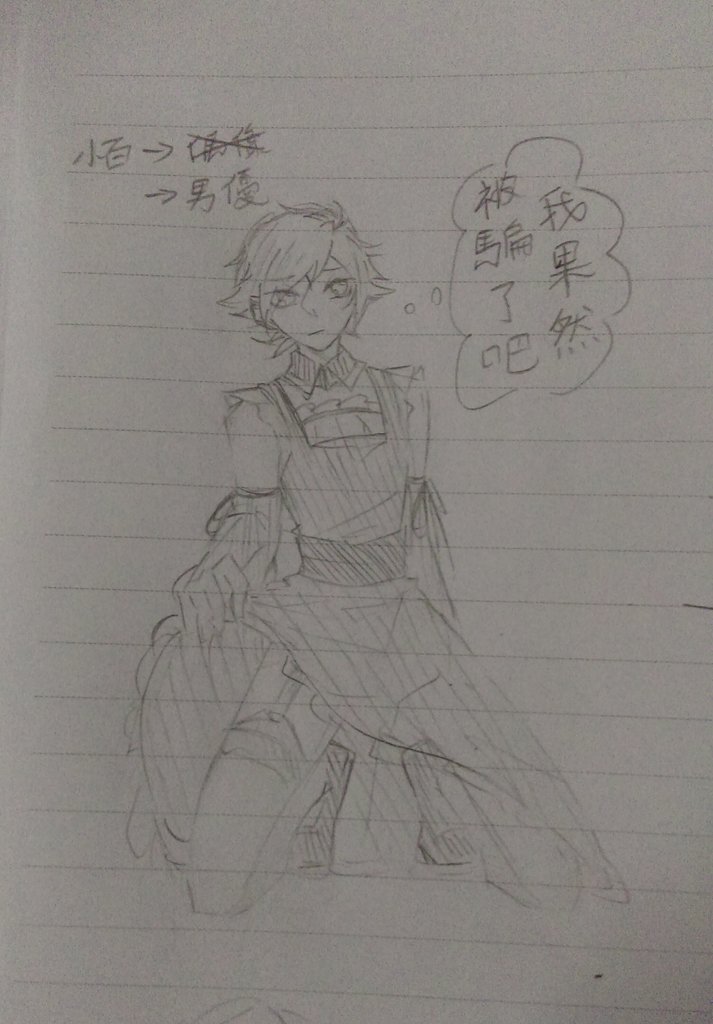 小百→偶像
→男優
我果然
被騙了吧